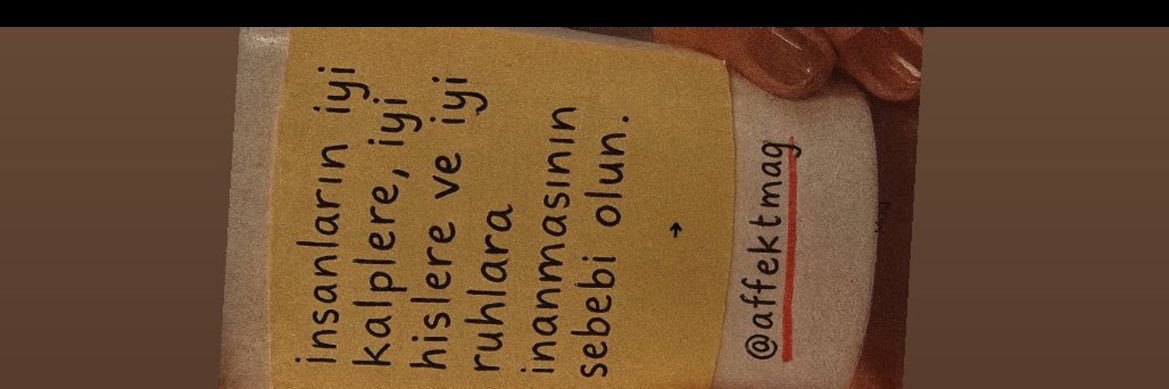 insanların iyi
kalplere, iyi
hislere ve iyi
ruhlara
inanmasının
sebebi olun.
→
@affektmag